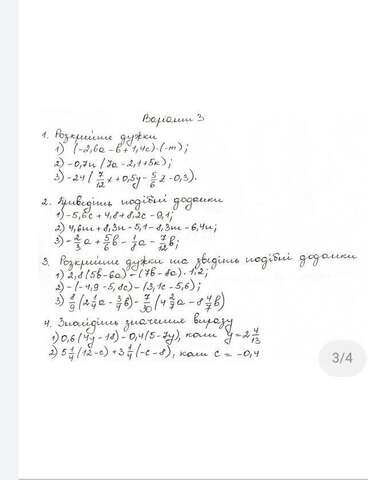 Варіант 3
1. Розкрийте дужки
1) (-2,6a - b + 1,4c)·(-m);
2) -0,7n(7a - 2,1 + 5k);
3) -24(7/12 x + 0,5y - 5/6 z - 0,3).
2. Зведіть подібні доданки
1) -5,6c + 4,8 + 8,2c - 0,1;
2) 4,6m + 8,3n - 5,1 - 8,3m - 6,4n;
3) -2/3 a + 5/6 b - 1/8 a - 7/12 b;
3. Розкрийте дужки та зведіть подібні доданки
1) 2,8(5b - 6a) - (7b - 8a)·1,2;
2) -(-4,9 - 5,8c) - (3,1c - 5,6);
3) 8/9(2 1/4 a - 3/4 b) - 7/30(4 2/7 a - 8 4/7 b)
4. Знайдіть значення виразу
1) 0,6(4y - 18) - 0,4(5 - 7y), коли y = 2 4/13
2) 5 1/4(12 - c) + 3 1/4(-c - 8), коли c = -0,4
3/4